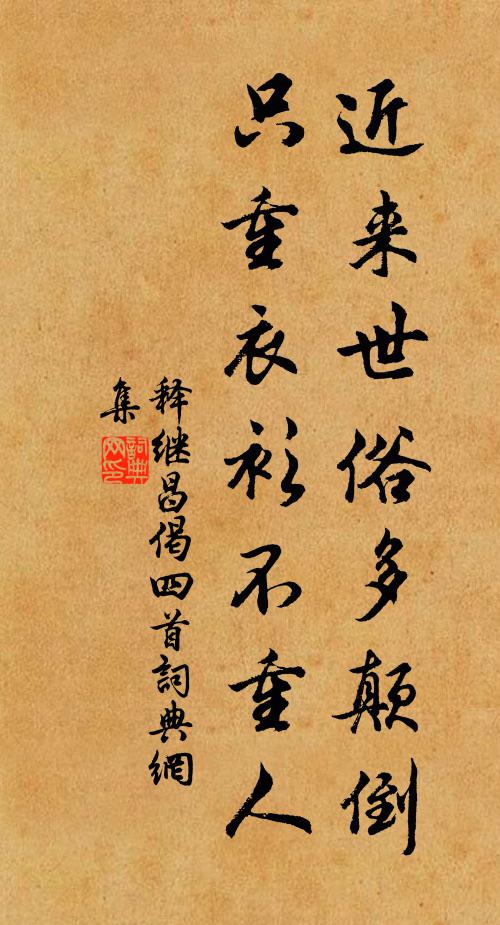 近来世俗多颠倒
只重衣衫不重人
释继昌偈四首詞典網
集
詞典网印